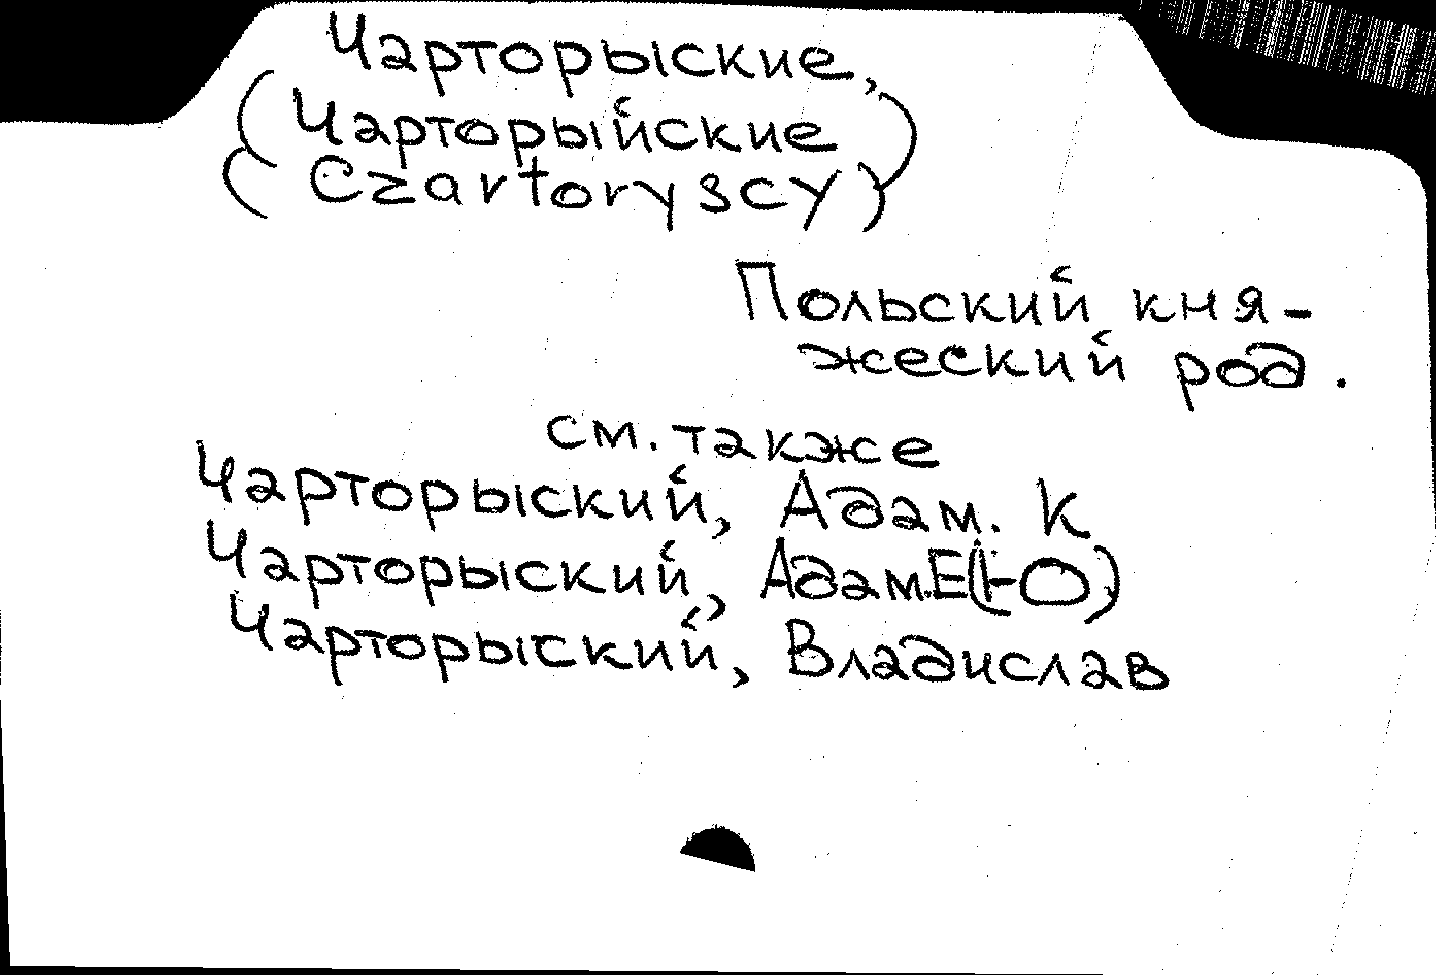 Чарторыские,
(Чарторыйские)
(Czartoryscy)
Польский кня-
жеский род.
см. также
Чарторыский, Адам. К
Чарторыский, Адам.Е(Ю)
Чарторыский, Владислав